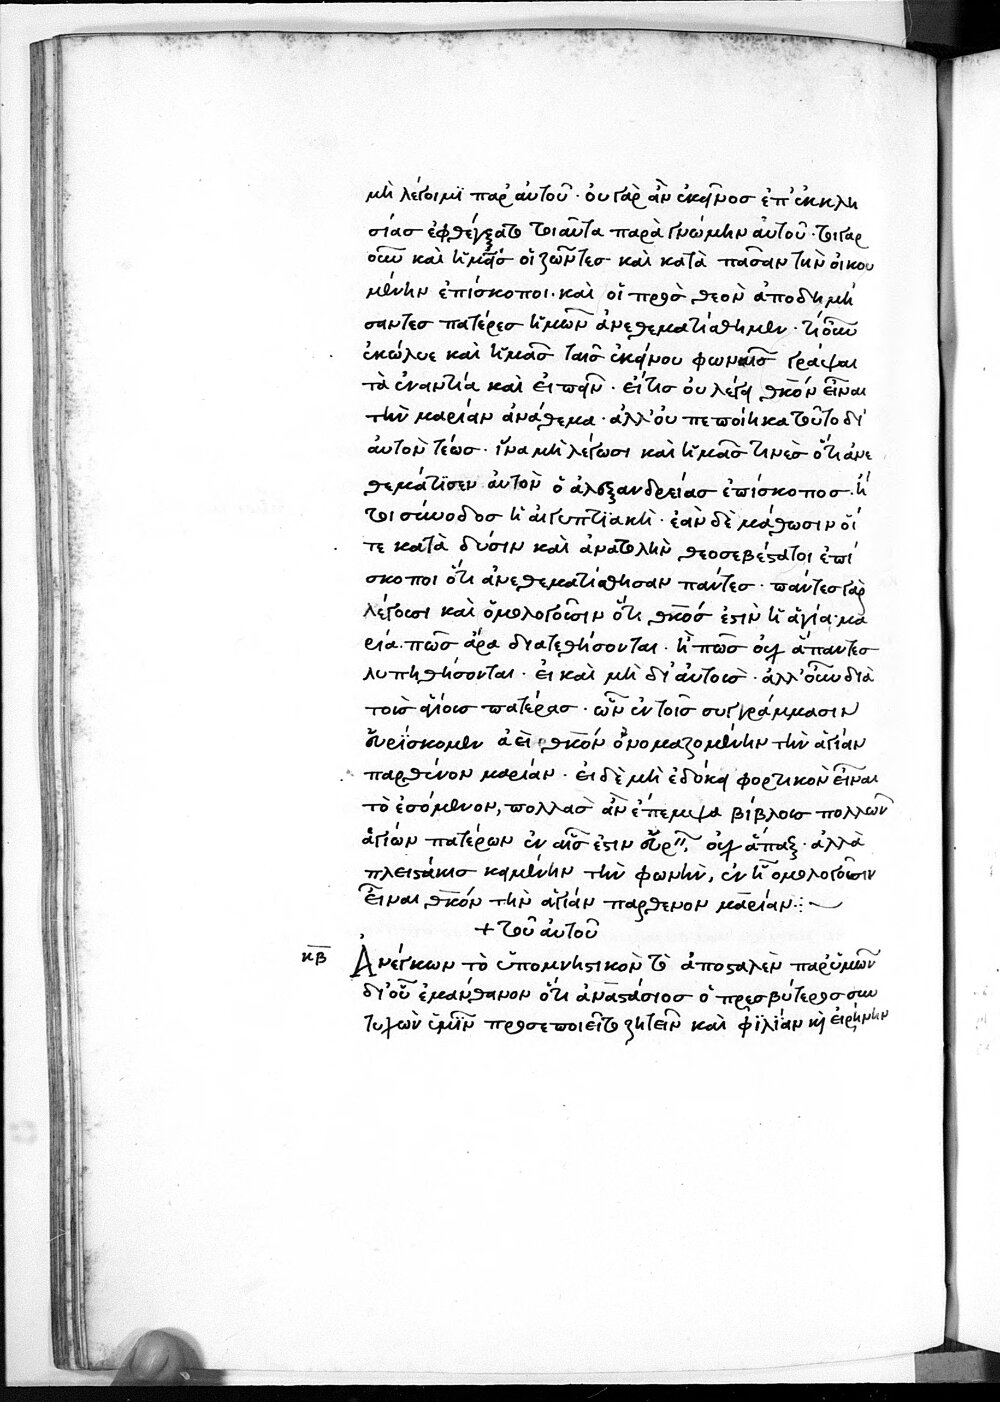 μὴ λέγοιμι παρ' αὐτοῦ · οὐ γὰρ ἂν ἐκεῖνος ἐπ' ἐκκλη
σίας ἐφθέγξατο τοιαῦτα παρὰ γνώμην αὐτοῦ · τί γὰρ
οὖν καὶ ἡμᾶς οἱ ζῶντες καὶ κατὰ πᾶσαν τὴν οἰκου
μένην ἐπίσκοποι · καὶ οἱ πρὸς θεὸν ἀποδημή
σαντες πατέρες ἡμῶν ἀνεθεματίσθημεν · τί οὖν
ἐκώλυε καὶ ἡμᾶς ταῖς ἐκείνου φωναῖς γράψαι
τὰ ἐναντία καὶ εἰπεῖν · εἴ τις οὐ λέγει θκ̅όν εἶναι
τὴν μαρίαν ἀνάθεμα · ἀλλ' οὐ πεποίηκα τοῦτο δι'
αὐτὸν τέως · ἵνα μὴ λέγωσι καὶ ἡμᾶς τινὲς ὅτι ἀνε
θεμάτισεν αὐτὸν ὁ ἀλεξανδρείας ἐπίσκοπος · ἤ
τοι σύνοδος ἡ αἰγυπτϊακὴ · ἐὰν δὲ μάθωσιν οἵ
τε κατὰ δύσιν καὶ ἀνατολὴν θεοσεβέστατοι ἐπί
σκοποι ὅτι ἀνεθεματίσθησαν πάντες · πάντες γὰρ
λέγουσι καὶ ὁμολογοῦσιν ὅτι θκ̅ός ἐστὶν ἡ ἁγία μα
ρία · πῶς ἄρα διατεθήσονται · ἢ πῶς οὐχ ἅπαντες
λυπηθήσονται · εἰ καὶ μὴ δι' αὐτοὺς · ἀλλ' οὖν διὰ
τοὺς ἁγίους πατέρας · ὧν ἐν τοῖς συγγράμμασιν
εὑρίσκομεν ἀεὶ θκ̅όν ὀνομαζομένην τὴν ἁγίαν
παρθένον μαρίαν · εἰ δὲ μὴ ἐδόκει φορτικὸν εἶναι
τὸ ἐσόμενον, πολλὰς ἂν ἔπεμψα βίβλους πολλῶν
ἁγίων πατέρων ἐν αἷς ἐστιν εὑρ'', οὐχ ἅπαξ · ἀλλὰ
πλειστάκις κειμένην τὴν φωνὴν, ἐν ᾗ ὁμολογοῦσιν
εἶναι θκ̅όν τὴν ἁγίαν παρθενον μαρίαν :~
+ τοῦ αὐτοῦ
κ̅β̅ Ἀνέγκων τὸ ὑπομνηστικὸν τὸ ἀποσταλὲν παρ' ὑμῶν
δι' οὗ ἐμάνθανον ὅτι ἀναστάσιος ὁ πρεσβύτερος συν
τυχὼν ὑμῖν προσεποιεῖτο ζητεῖν καὶ φιλίαν κ̀ εἰρήνην